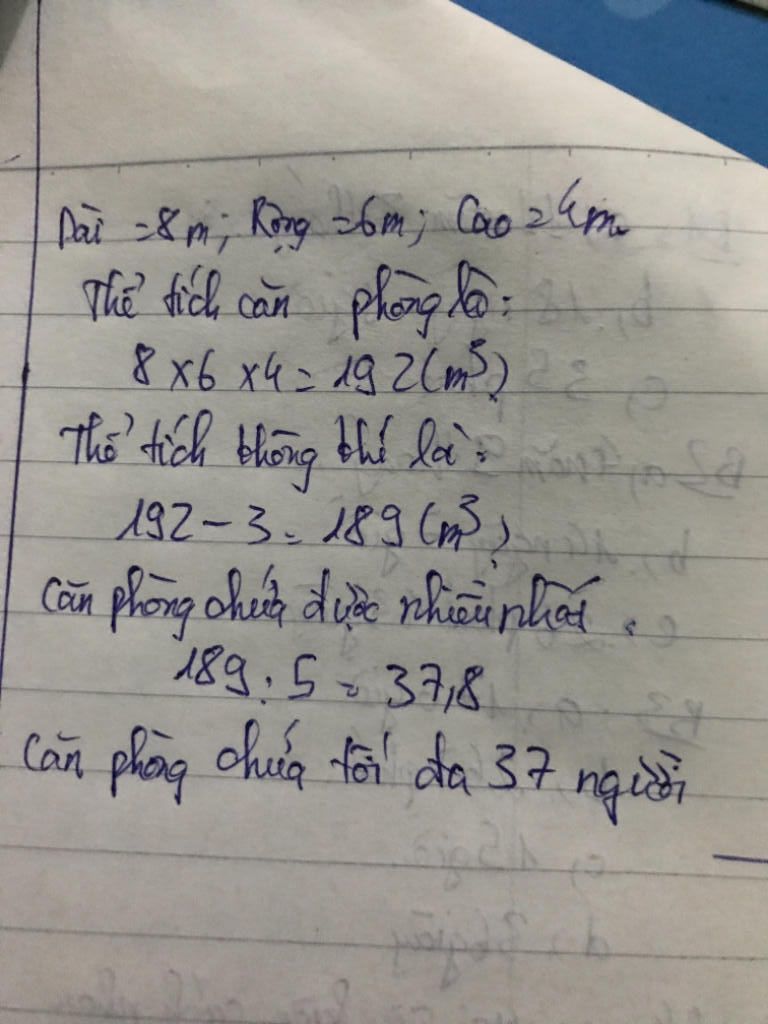 Dài = 8m; Rộng = 6m; Cao = 4m
Thể tích căn phòng là:
8 x 6 x 4 = 192 (m³)
Thể tích không khí là:
192 - 3 = 189 (m³)
Căn phòng chứa được nhiều nhất.
189 : 5 = 37,8
Căn phòng chứa tối đa 37 người